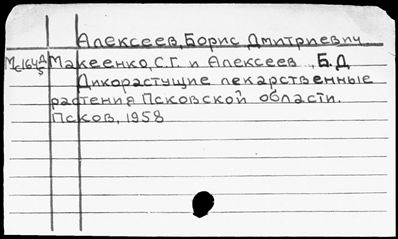 Алексеев, Борис Дмитриевич
Мс164 Д/5 Макеенко, С.Г. и Алексеев, Б.Д
Дикорастущие лекарственные
растения Псковской области.
Псков, 1958